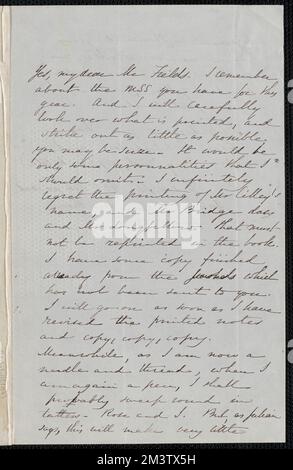 Yes, my dear Mr Fields. I remember
about the MSS you have for this
year. And I will carefully
look over what is printed, and
strike out as little as possible,
you may be sure. It would be
only some personalities that I
should omit. I infinitely
regret the printing of Mr Cilley's
name, and Mr Bridge does
and Mr Longfellow. That must
not be reprinted in the book.
I have some copy finished
already from the journals which
has not been sent to you.
I will go on as soon as I have
revised the printed notes
and copy, copy, copy.
Meanwhile, as I am now a
needle and thread, when I
am again a pen, I shall
probably sweep round in
tatters - Rose and I. But as Julian
says, this will make very little
alamy
Image ID: 2M3TX5H
www.alamy.com